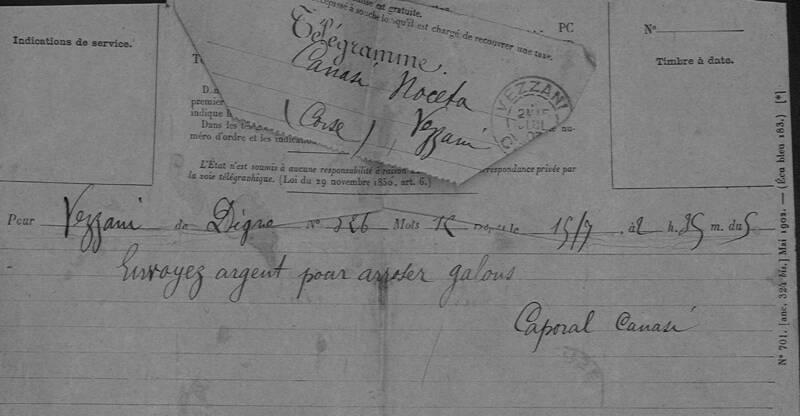 Indications de service.
est gratuite.
dépassé à souche lorsqu'il est chargé de recouvrer une taxe.
Télégramme.
Canasi Noceta
Vezzani
(Corse)
VEZZANI
PC
N°
Timbre à date.
premier
indique
Dans les
méro d'ordre et les
L'État n'est soumis à aucune responsabilité à raison correspondance privée par
la voie télégraphique. (Loi du 29 novembre 1850, art. 6.)
Pour Vezzani de Digne N° 326 Mots 12 le 15/7, à 2 h. 35 m. du S
Envoyez argent pour arroser galons
Caporal Canasi
N° 701. [anc. 324 bis.] Mai 1902. — (Écu bleu 183.) [*]